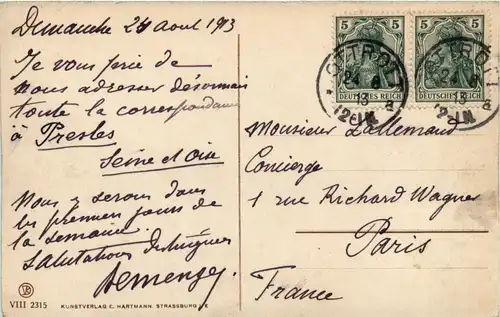 Demanche 24 aout 1913
Je vous prie de
nous adresser désormais
toute la correspondance
à Presles
Seine et Oise
Nous y serons dans
les premiers jours de
la semaine.
Salutations distinguées
VIII 2315
KUNSTVERLAG E. HARTMANN, STRASSBURG i/E
5 5 5 5
DEUTSCHES REICH DEUTSCHES REICH
OTTROTT
24 8
13
12-1N
OTTROTT
24 8
13
12-1N
Monsieur Lallemand
Concierge
1 rue Richard Wagner
Paris
France